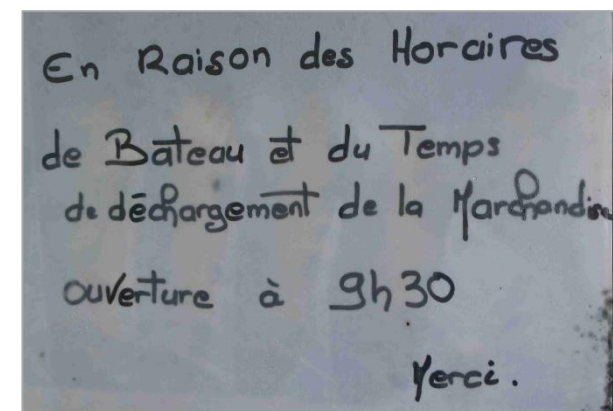 En Raison des Horaires
de Bateau et du Temps
de déchargement de la Marchandise
ouverture à 9h30
Merci.